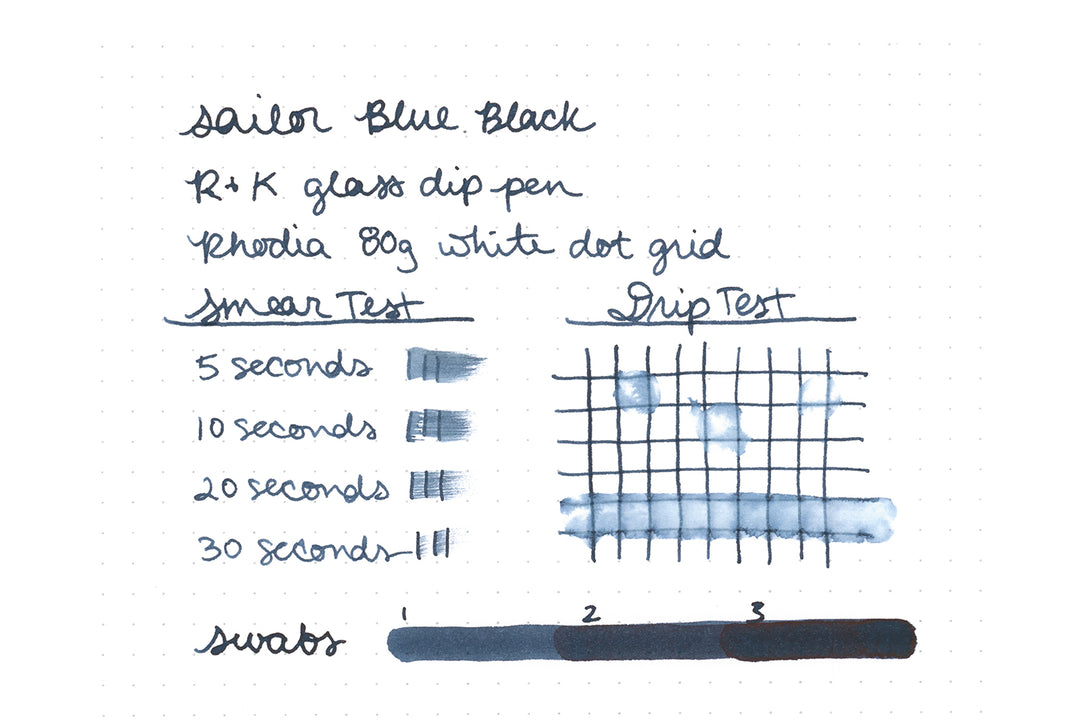 Sailor Blue Black
R+K glass dip pen
Rhodia 80g white dot grid
Smear Test
Drip Test
5 seconds
10 seconds
20 seconds
30 seconds
1 2 3
swabs